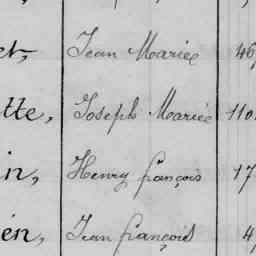 et, Jean Mariee 46,
tte, Joseph Mariée 110.
in, Henry françois 17
én, Jean françois 4